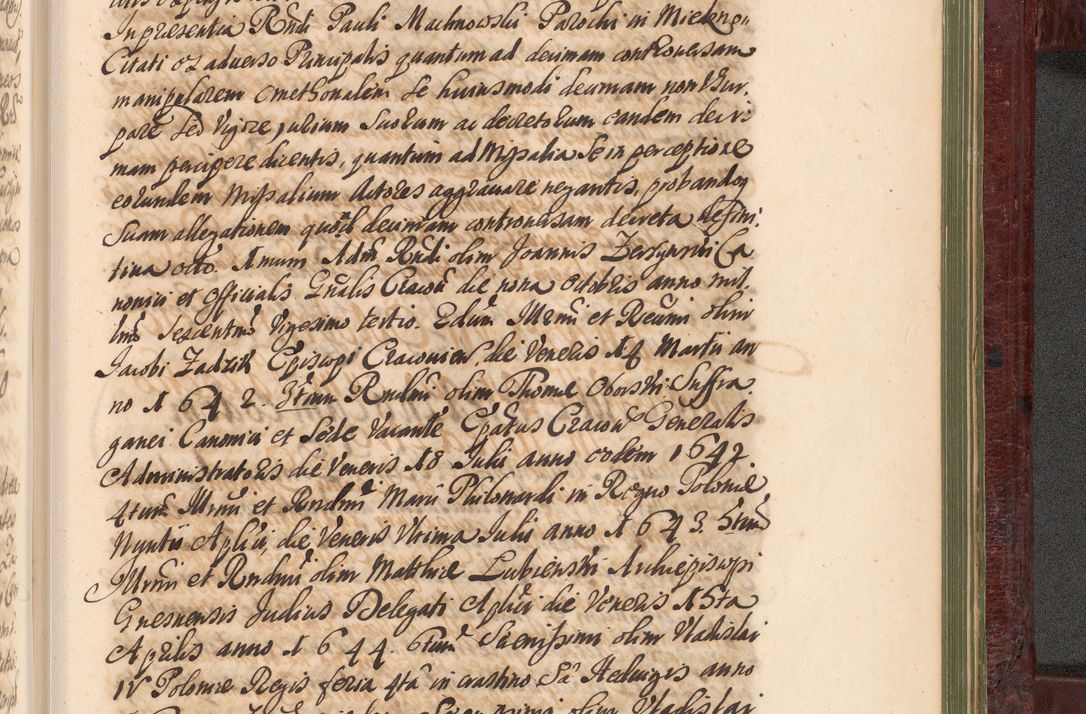 In præsentia Rndi Pauli Machnowski Parochi in
Citati ex adverso Principalis quantum ad decimam controversam
manipularem cmethonalem se huiusmodi decimam non Usur,
pare sed Vigore jurium suorum ac decretorum eandem deci
mam percipere dicentis, quantum ad Missalia se in perceptione
eorundem Missalium Actores aggravare negantis, probandoq
suam allegationem quod decimam controversam decreta deffini
tiva octo. 1mum Adm Rndi olim Joannis Ca
nonici et Officialis Gnalis Cracou die nona Octobris anno mil,
lmo sexcentmo Vigesimo tertio. 2dum Illrmi et Reumi olim
Jacobi Zadzik Episcopi Cracouien, die Veneris 14 Martii an
no 1642. 3tium Rndmi olim Thomæ Oborski Suffra
ganei Canonici et Sede Vacante Epatus Cracou Generalis
Administratoris die Veneris 18 Julii anno eodem 1642
4tum Illrmi et Rndmi Marii Philonardi in Regno Poloniæ
Nuntii Aplici, die Veneris Ultima Julii anno 1643. 5tum
Illrmi et Rndmi olim Matthiæ Lubienski Archiepiscopi
Gnesnensis Judicis Delegati Aplici die Veneris 15ta
Aprilis anno 1644. 6tum Serenissimi olim Vladislai
IV Poloniæ Regis feria 4ta in crastino Sæ Hedwigis anno
olim Vladislai